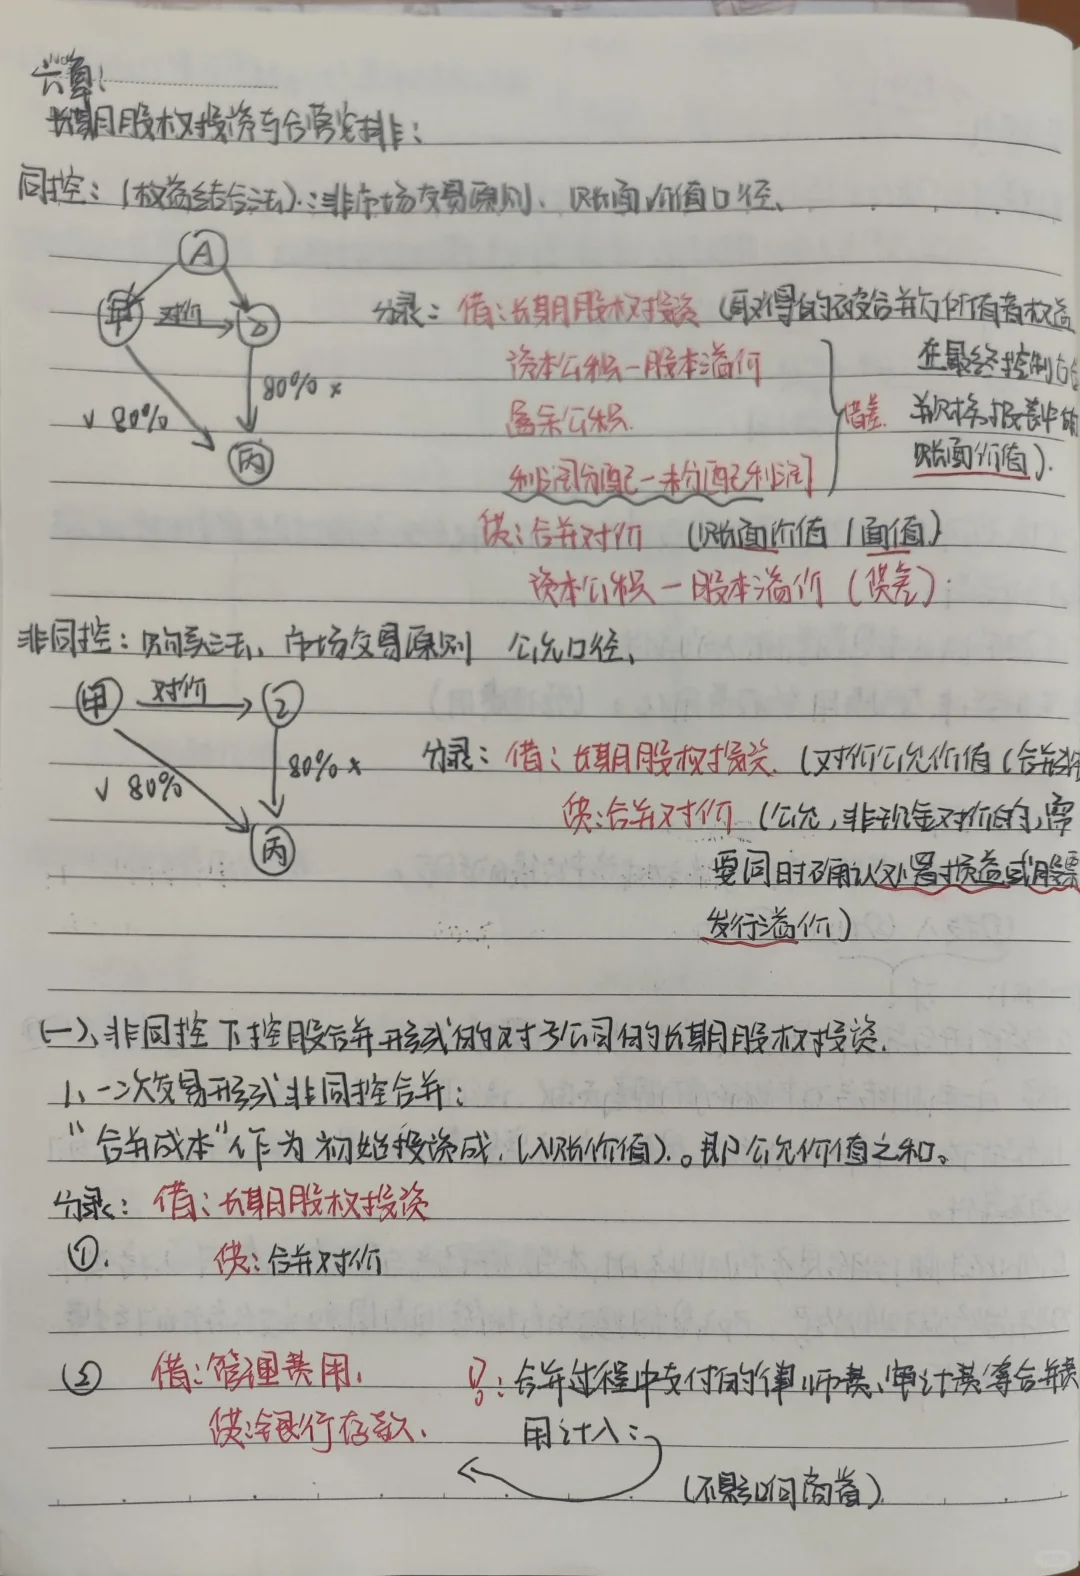 六章:
长期股权投资与合营安排:
同控:(权益结合法):非市场交易原则、账面价值口径、
A
甲 对价 乙
80% ×
√ 80%
丙
分录: 借:长期股权投资 (取得的被合并方所有者权益
在最终控制方合
并财务报表中的
账面价值).
资本公积—股本溢价
盈余公积
利润分配—未分配利润
借差
贷:合并对价 (账面价值/面值)
资本公积—股本溢价(贷差)
非同控:购买法、市场交易原则 公允口径、
甲 对价 乙
80% ×
√ 80%
丙
分录: 借:长期股权投资 (对价公允价值(合并
贷:合并对价 (公允,非现金对价的,需
要同时确认处置损益或股票
发行溢价)
(一)、非同控下控股合并形式的对子公司的长期股权投资.
1、一次交易形式非同控合并:
“合并成本”作为初始投资成,(入账价值)。即公允价值之和。
分录: 借:长期股权投资
①. 贷:合并对价
② 借:管理费用、 合并过程中支付的律师费、审计费等合并费
贷:银行存款、 用计入:
(不影响商誉).